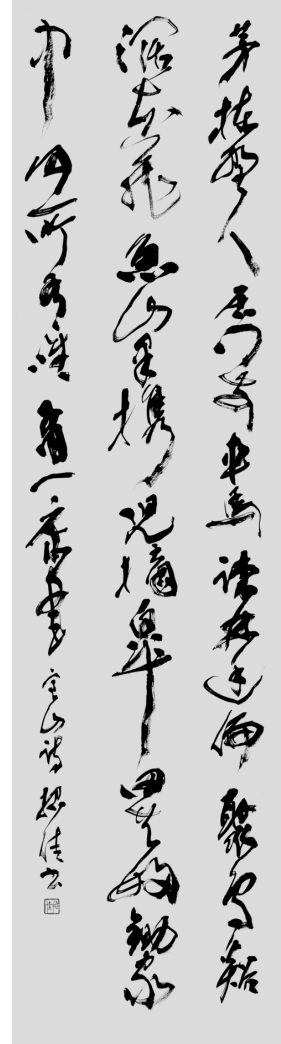 茅棟野人居門前車馬疎林幽偏聚鳥谿
濶本藏魚山果攜兒摘皋田共婦鋤家
中何所有唯有一床書寒山詩